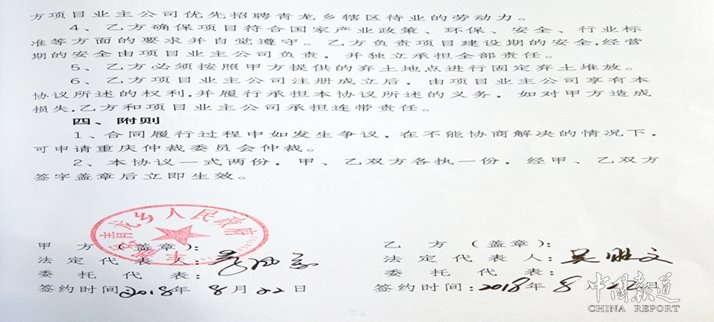 方项目业主公司优先招聘青龙乡辖区待业的劳动力。
4、乙方确保项目符合国家产业政策、环保、安全、行业标
准等方面的要求并自觉遵守。乙方负责项目建设期的安全,经营
期的安全由项目业主公司负责，并独立承担全部责任。
5、乙方必须按照甲方提供的弃土地点进行固定弃土堆放。
6、乙方项目业主公司注册成立后，由项目业主公司享有本
协议所述的权利,并履行承担本协议所述的义务，如对甲方造成
损失,乙方和项目业主公司承担连带责任。
四、附则
1、合同履行过程中如发生争议，在不能协商解决的情况下，
可申请重庆仲裁委员会仲裁。
2、本协议一式两份，甲、乙双方各执一份，经甲、乙双方
签字盖章后立即生效。
青龙乡人民政府
甲方（盖章）：
法定代表人：
委托代表：
签约时间：2018年8月22日
乙方（盖章）：
法定代表人：吴胜文
委托代表：
签约时间：2018年8月22日
中国报道
CHINA REPORT